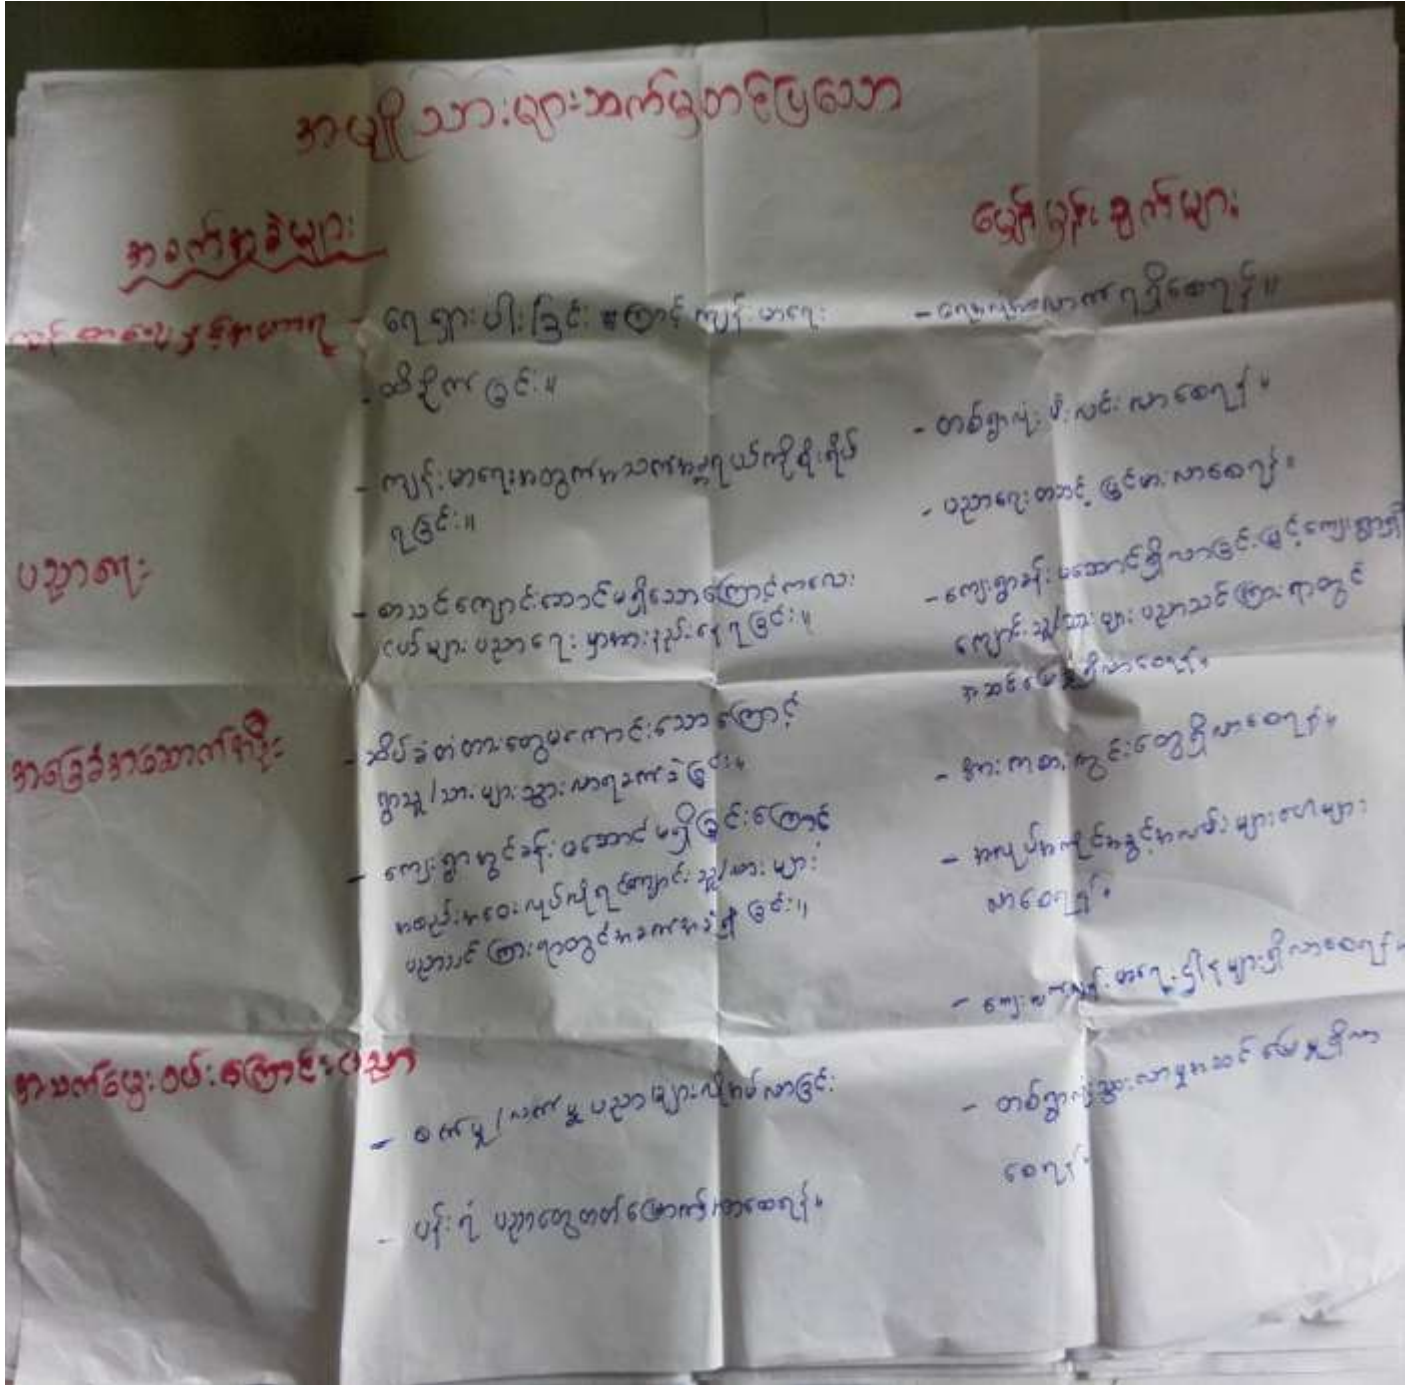 အမျိုးသားများဘက်မှတင်ပြသော
အခက်အခဲများ
မျှော်မှန်းချက်များ
ကျန်းမာရေးနှင့်အာဟာရ
- ရေရှားပါးခြင်းကြောင့် ကျန်းမာရေး
ထိခိုက်ခြင်း။
- ကျန်းမာရေးအတွက်အသက်အန္တရာယ်ကိုစိုးရိမ်
ရခြင်း။
ပညာရေး
- စာသင်ကျောင်းဆောင်မရှိသောကြောင့်ကလေး
ငယ်များ ပညာရေး မှာအားနည်းနေရခြင်း။
အခြေခံအဆောက်အဦး
- ဆိပ်ခံတံတားတွေမကောင်းသောကြောင့်
ရွာသူ/သားများသွားလာရခက်ခဲခြင်း။
- ကျေးရွာတွင်ခန်းမဆောင်မရှိခြင်းကြောင့်
အစည်းအဝေးလုပ်လို့ရင်ကျောင်းသူ/သားများ
ပညာသင်ကြားရာတွင်အခက်အခဲရှိခြင်း။
အသက်မွေးဝမ်းကြောင်းပညာ
- စက်မှု/လက်မှု ပညာများလိုအပ်လာခြင်း
- ပန်းရံ ပညာတွေတတ်မြောက်လာစေရန်။
- ရေအလုံအလောက်ရရှိစေရန်။
- တစ်ရွာလုံးမီးလင်းလာစေရန်။
- ပညာရေးတဆင့်မြင့်မားလာစေရန်။
- ကျေးရွာခန်းမဆောင်ရှိလာခြင်းဖြင့်ကျေးရွာရှိ
ကျောင်းသူ/သားများ ပညာသင်ကြားရာတွင်
အဆင်ပြေမှုရှိလာစေရန်။
- အားကစားကွင်းတွေရှိလာစေရန်။
- အလုပ်အကိုင်အခွင့်အလမ်းများပေါများ
လာစေရန်။
- ကျေးလက်ကျန်းမာရေးဌါနများရှိလာစေရန်။
- တစ်ရွာလုံးသွားလာမှုအဆင်ပြေမှုရှိလာ
စေရန်။